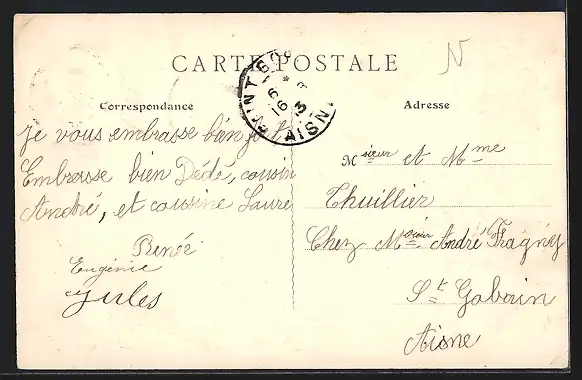 CARTE POSTALE
N
Correspondance
Adresse
SAINT-GOB
16 3
AISN
Je vous embrasse bien fort
Embrasse bien Dédé, cousin
André, et cousine Laure
Renée
Eugénie
Jules
Msieur et Mme
Thuillier
Chez Msieur André Fragny
St Gobain
Aisne